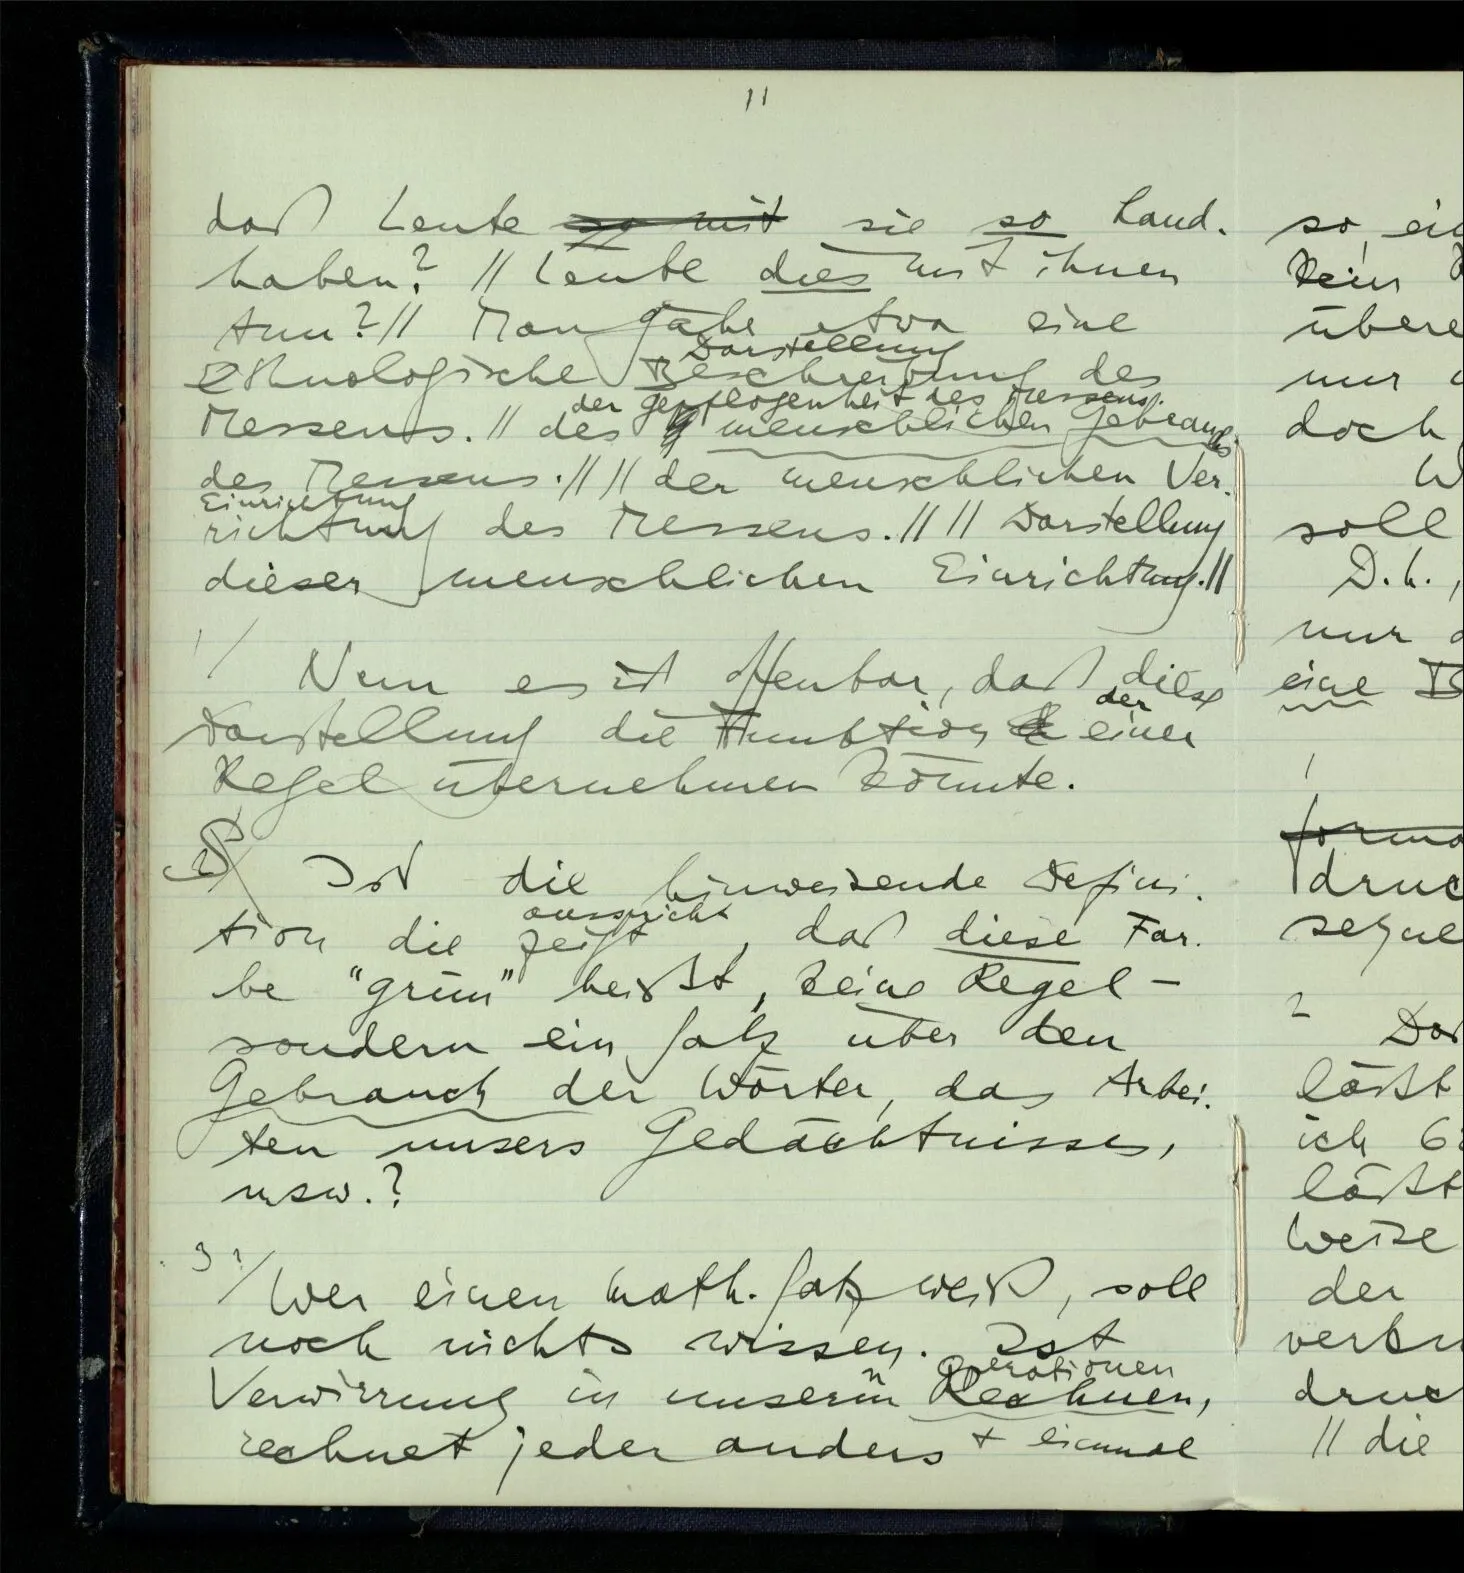 11
daß Leute so mit sie so hand-
haben? // Leute dies mit ihnen
tun?// Man gäbe etwa eine
Darstellung
Ethnologische Beschreibung des
der Gepflogenheit des Messens.
Messens. // des menschlichen Gebrauchs
des Messens.// // der menschlichen Ver-
Einrichtung
richtung des Messens.// // Darstellung
dieser menschlichen Einrichtung.//
1/
Nun es ist offenbar, daß diese
der
Darstellung die Funktion einer
Regel übernehmen könnte.
2/
Ist die hinweisende Defini-
ausspricht
tion die zeigt, daß diese Far-
be "grün" heißt, keine Regel –
sondern ein Satz über den
Gebrauch der Wörter, das Arbei-
ten unsers Gedächtnisses,
usw.?
3
Wer einen math. Satz weiß, soll
noch nichts wissen. Ist
Operationen
Verwirrung in unserm Rechnen,
rechnet jeder anders + einmal
so, ei
kein
über
nur
doch
W
soll
D.h.,
nur
eine
1
druc
2
läßt
ich 6
läßt
Weise
der
druc
// die